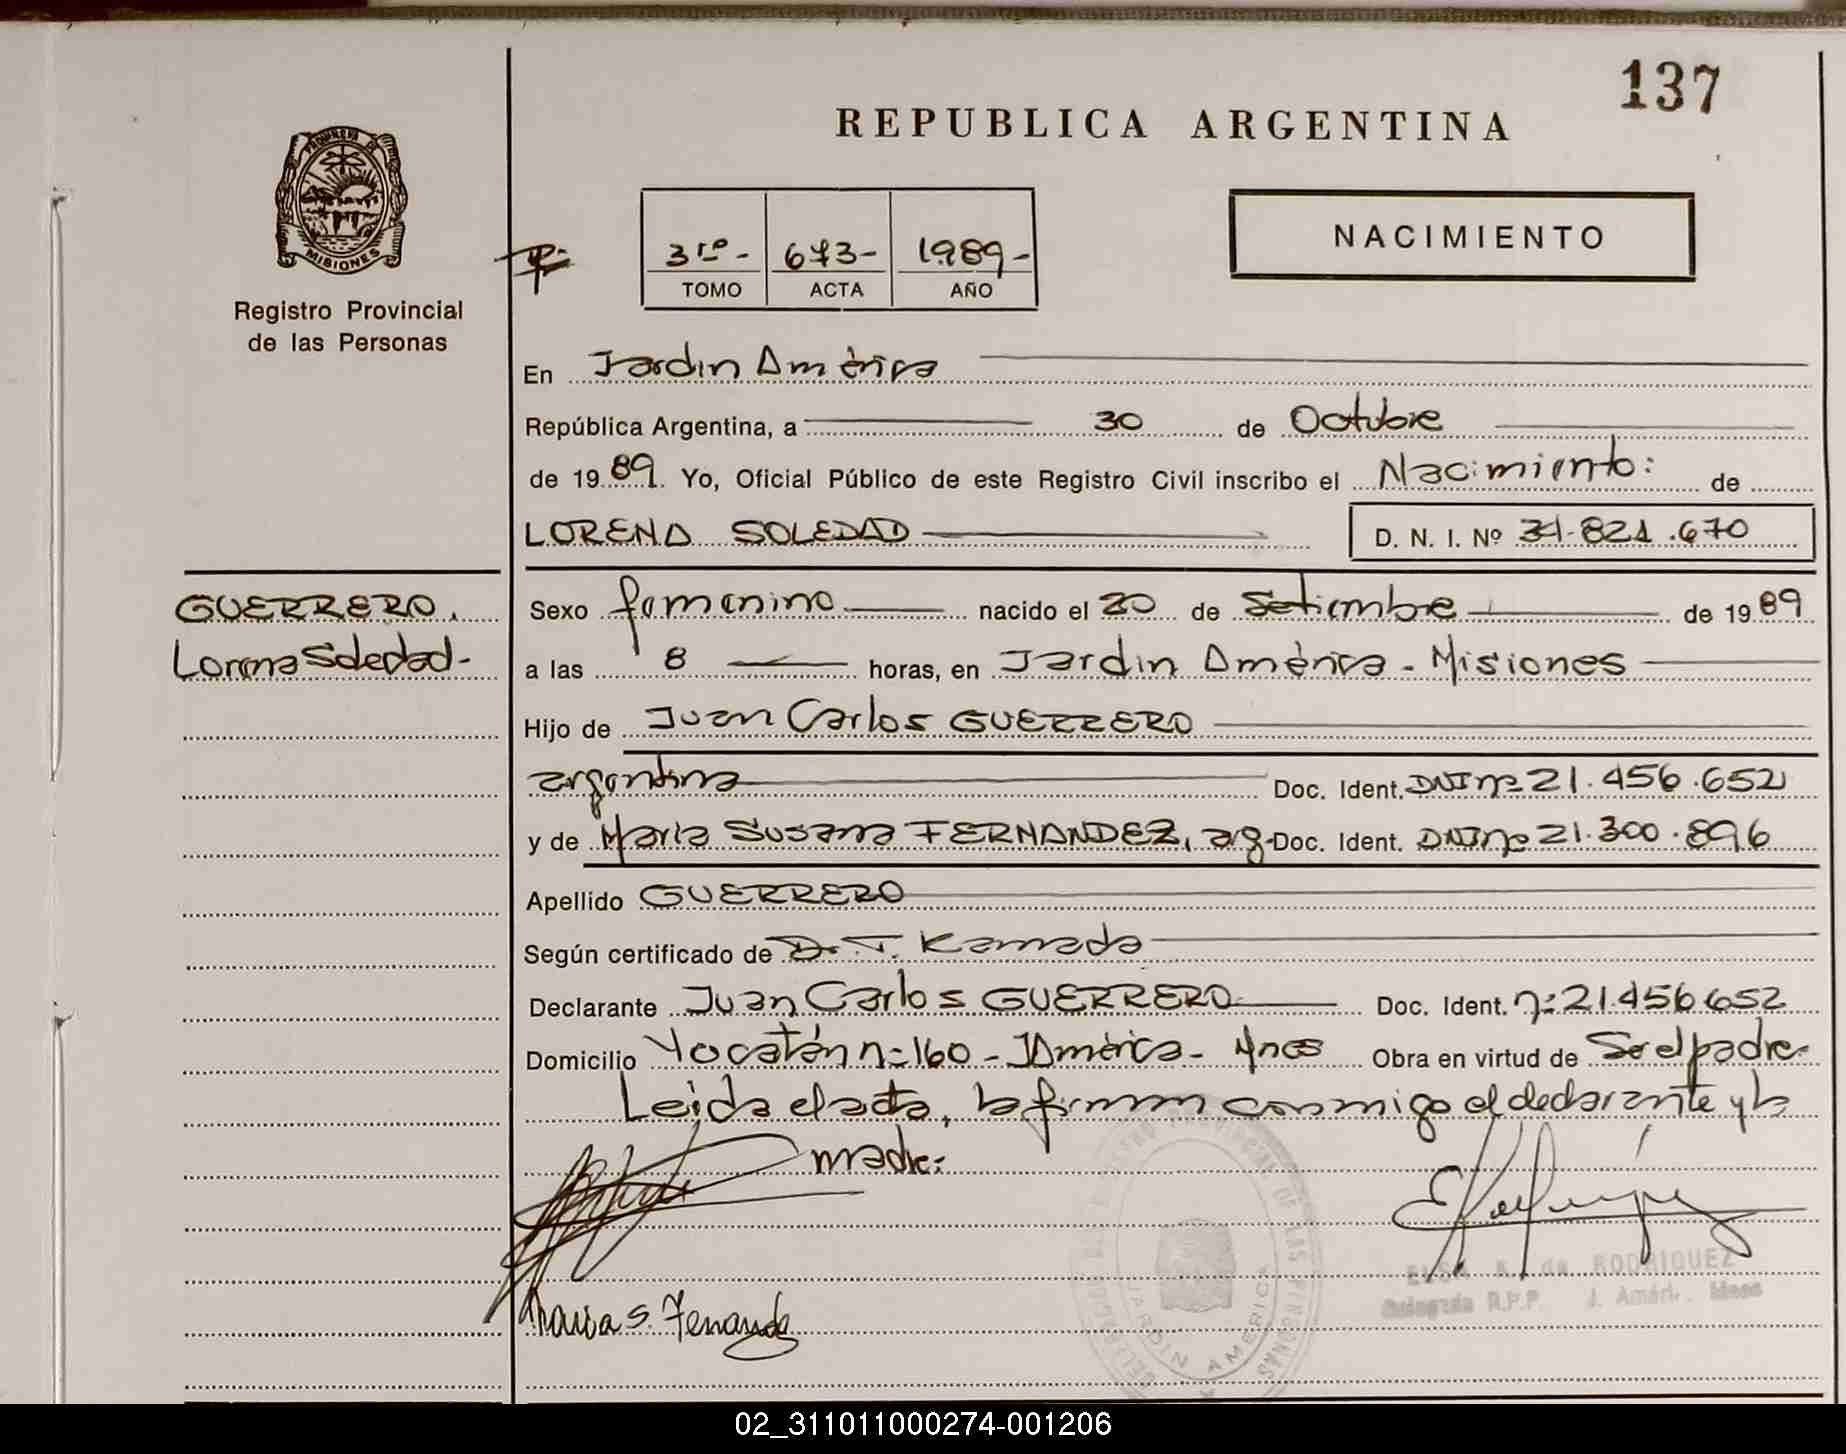 137
REPUBLICA ARGENTINA
PROVINCIA DE
MISIONES
Registro Provincial
de las Personas
3ro - 673 - 1989 -
TOMO ACTA AÑO
NACIMIENTO
En Jardin América
República Argentina, a 30 de Octubre
de 1989. Yo, Oficial Público de este Registro Civil inscribo el Nacimiento: de
LORENA SOLEDAD D. N. I. Nº 34.821.670
GUERRERO,
Lorena Soledad-
Sexo femenino nacido el 20 de Setiembre de 1989
a las 8 horas, en Jardin América - Misiones
Hijo de Juan Carlos GUERRERO
argentina Doc. Ident. DNI nº 21.456.652
y de Maria Susana FERNANDEZ, arg- Doc. Ident. DNI nº 21.300.896
Apellido GUERRERO
Según certificado de Dr. T. Kamada
Declarante Juan Carlos GUERRERO Doc. Ident. nº 21.456652
Domicilio Yocatán n=160 - J América - Mnes Obra en virtud de Ser el padre-
Leida el acta, la firman conmigo el declarante y la
madre:
Maria S. Fernandez
ELSA K. de RODRIQUEZ
Delegada R.P.P. J. Améri. Mnes
JARDIN AMERICA
02_311011000274-001206